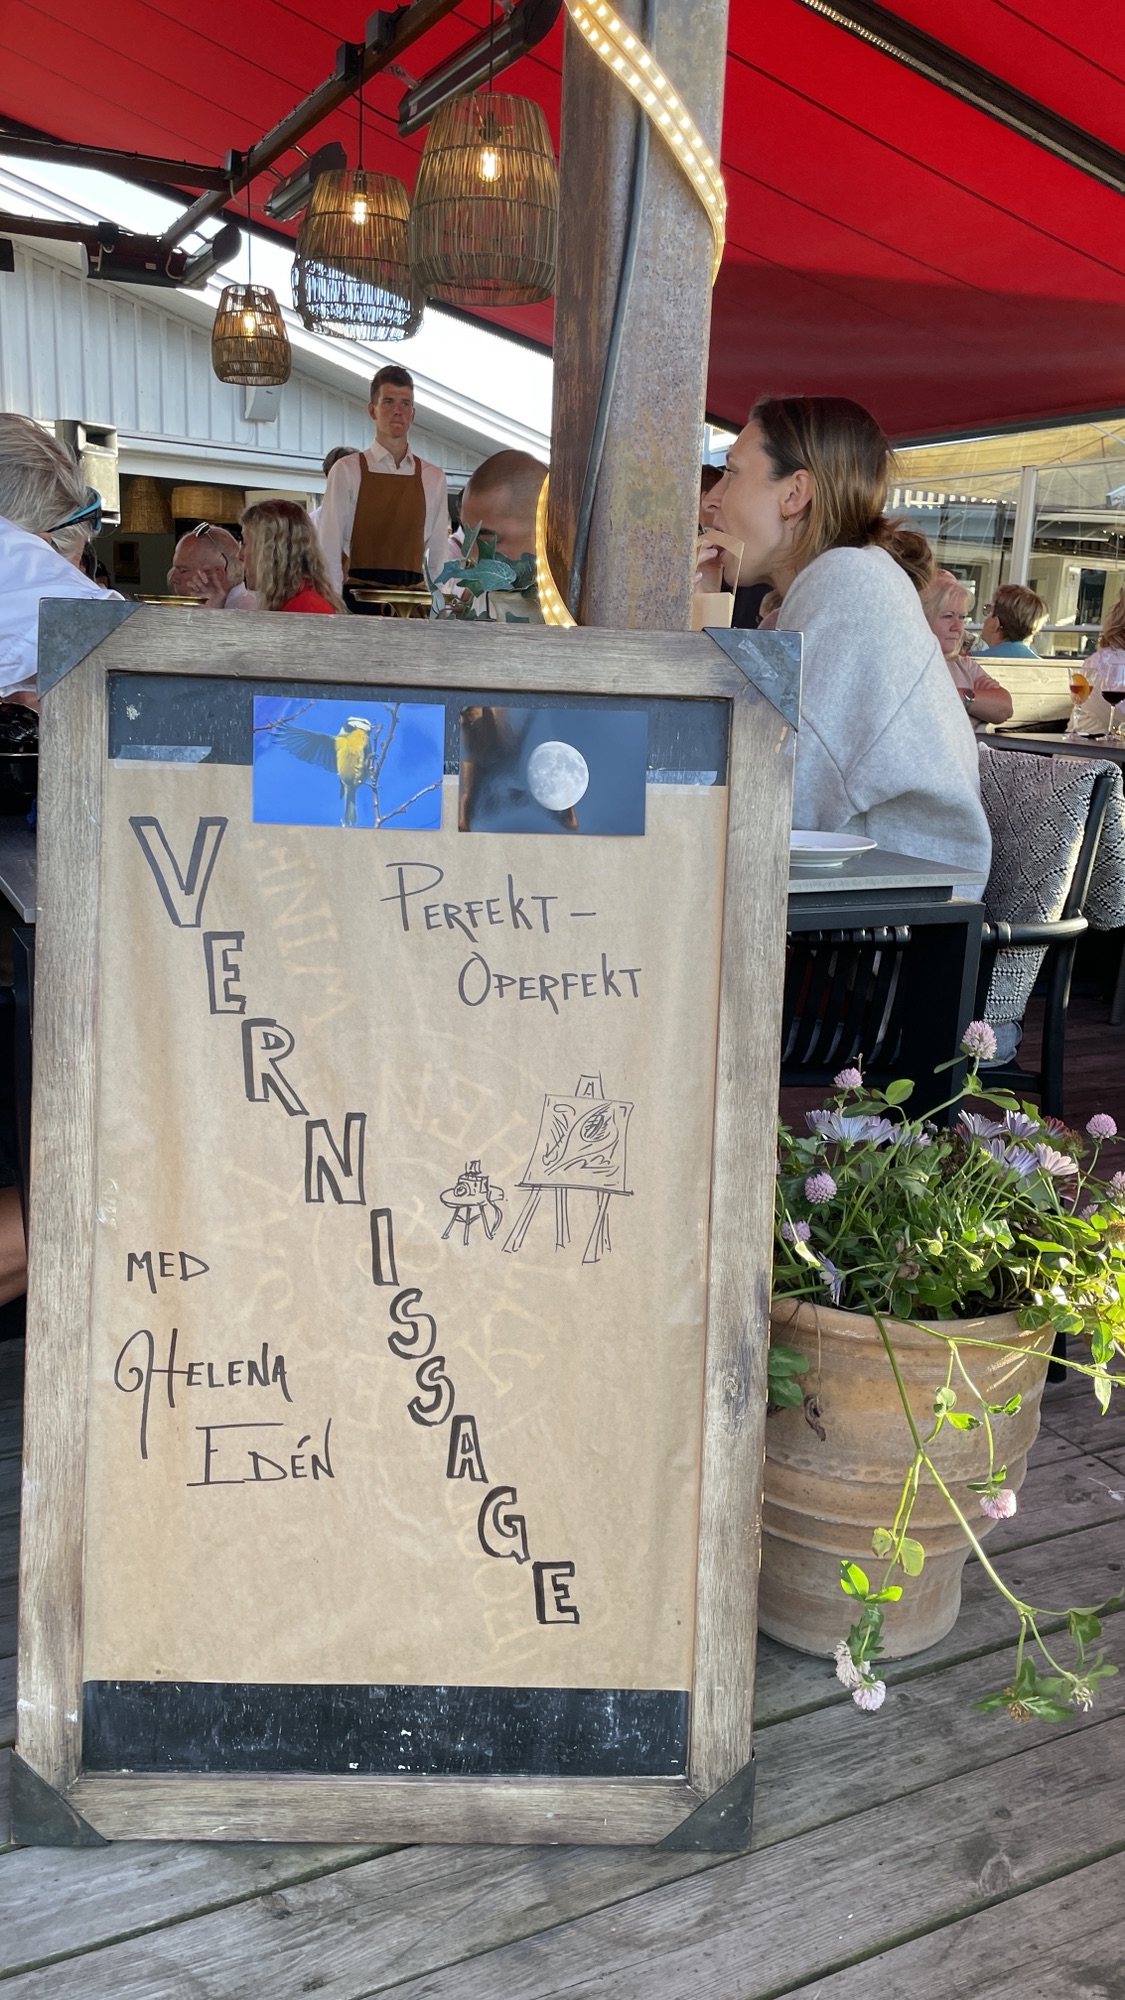 VERNISSAGE
PERFEKT –
OPERFEKT
MED
HELENA
EDÉN